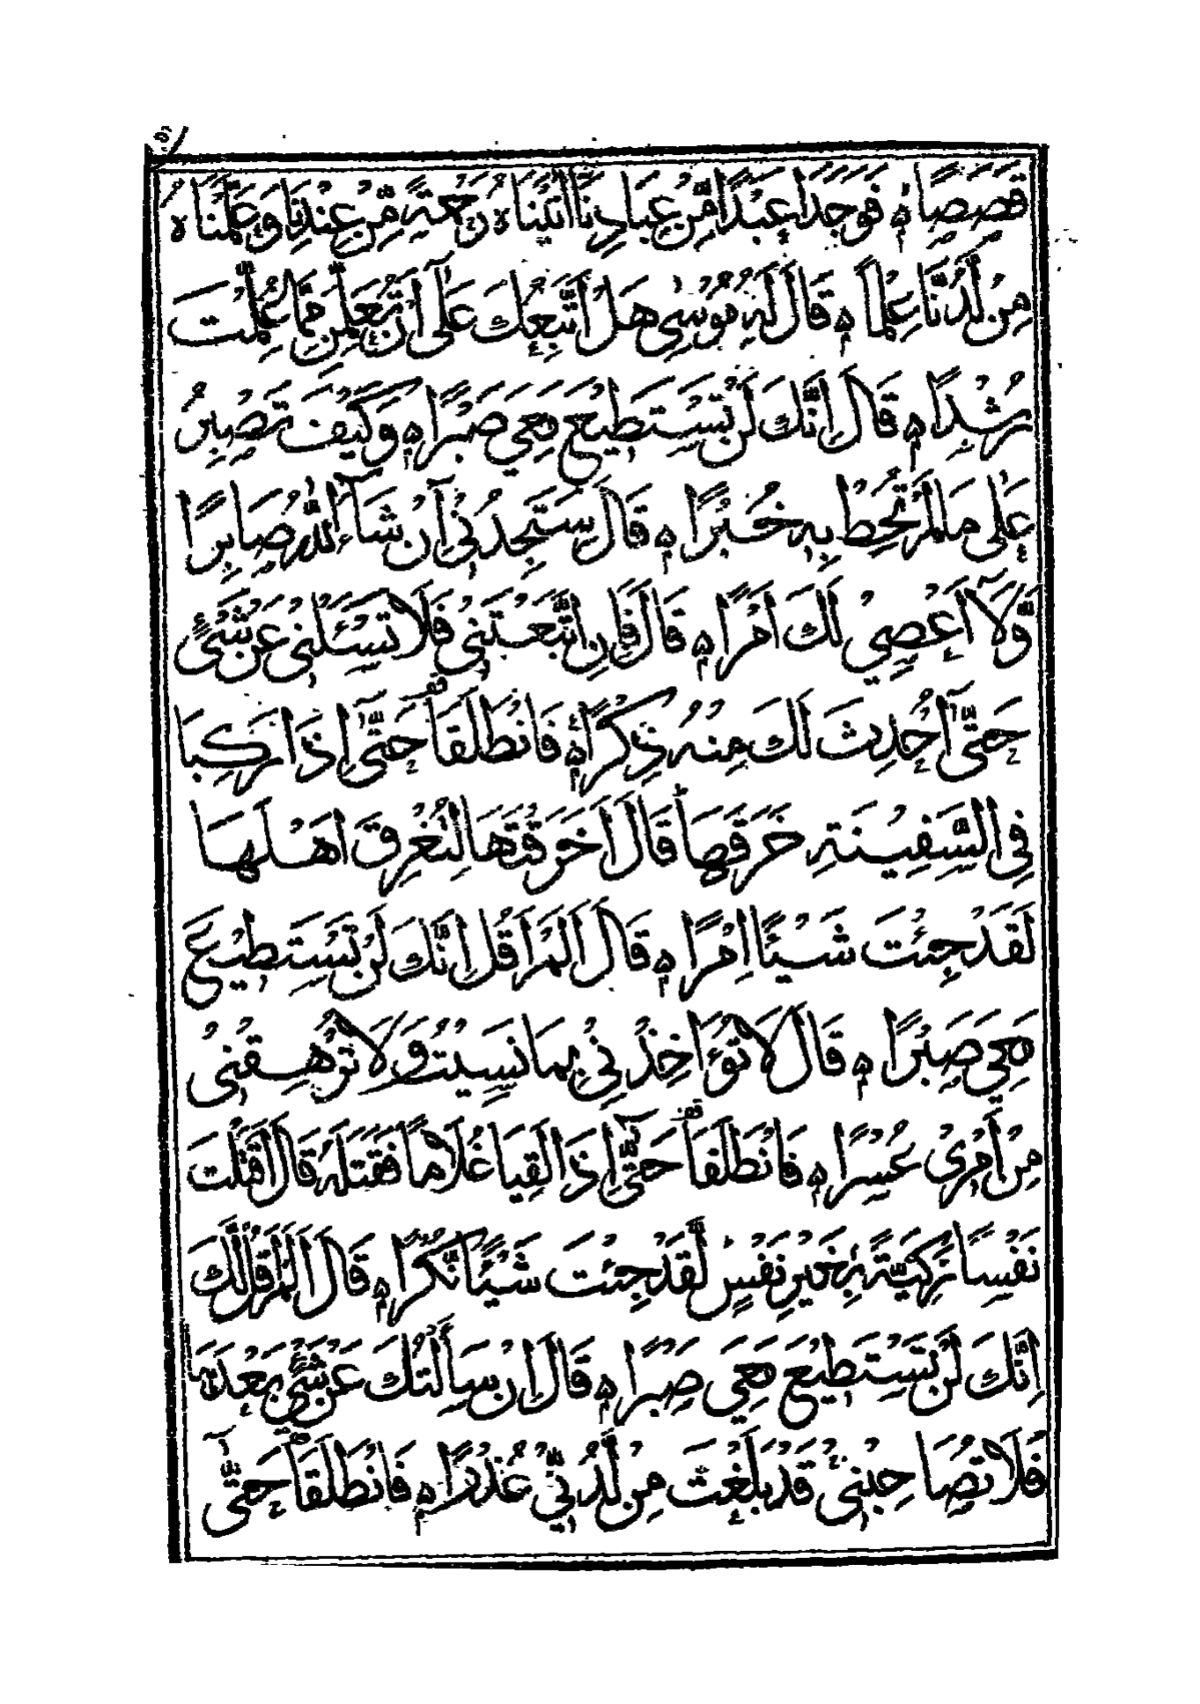 قَصَصًا ۝ فَوَجَدَا عَبْدًا مِّنْ عِبَادِنَا اٰتَيْنَاهُ رَحْمَةً مِّنْ عِنْدِنَا وَعَلَّمْنَاهُ
مِنْ لَّدُنَّا عِلْمًا ۝ قَالَ لَهٗ مُوْسٰى هَلْ اَتَّبِعُكَ عَلٰٓى اَنْ تُعَلِّمَنِ مِمَّا عُلِّمْتَ
رُشْدًا ۝ قَالَ اِنَّكَ لَنْ تَسْتَطِيْعَ مَعِيَ صَبْرًا ۝ وَكَيْفَ تَصْبِرُ
عَلٰى مَا لَمْ تُحِطْ بِهٖ خُبْرًا ۝ قَالَ سَتَجِدُنِيْٓ اِنْ شَآءَ اللّٰهُ صَابِرًا
وَّلَآ اَعْصِيْ لَكَ اَمْرًا ۝ قَالَ فَاِنِ اتَّبَعْتَنِيْ فَلَا تَسْـَٔلْنِيْ عَنْ شَيْءٍ
حَتّٰىٓ اُحْدِثَ لَكَ مِنْهُ ذِكْرًا ۝ فَانْطَلَقَا قف حَتّٰىٓ اِذَا رَكِبَا
فِى السَّفِيْنَةِ خَرَقَهَا ؕ قَالَ اَخَرَقْتَهَا لِتُغْرِقَ اَهْلَهَا
لَقَدْ جِئْتَ شَيْـًٔا اِمْرًا ۝ قَالَ اَلَمْ اَقُلْ اِنَّكَ لَنْ تَسْتَطِيْعَ
مَعِيَ صَبْرًا ۝ قَالَ لَا تُؤَاخِذْنِيْ بِمَا نَسِيْتُ وَلَا تُرْهِقْنِيْ
مِنْ اَمْرِيْ عُسْرًا ۝ فَانْطَلَقَا قف حَتّٰىٓ اِذَا لَقِيَا غُلَامًا فَقَتَلَهٗ قَالَ اَقَتَلْتَ
نَفْسًا زَكِيَّةًۢ بِغَيْرِ نَفْسٍ لَقَدْ جِئْتَ شَيْـًٔا نُّكْرًا ۝ قَالَ اَلَمْ اَقُلْ لَّكَ
اِنَّكَ لَنْ تَسْتَطِيْعَ مَعِيَ صَبْرًا ۝ قَالَ اِنْ سَاَلْتُكَ عَنْ شَيْءٍۭ بَعْدَهَا
فَلَا تُصَاحِبْنِيْ قَدْ بَلَغْتَ مِنْ لَّدُنِّيْ عُذْرًا ۝ فَانْطَلَقَا حَتّٰىٓ